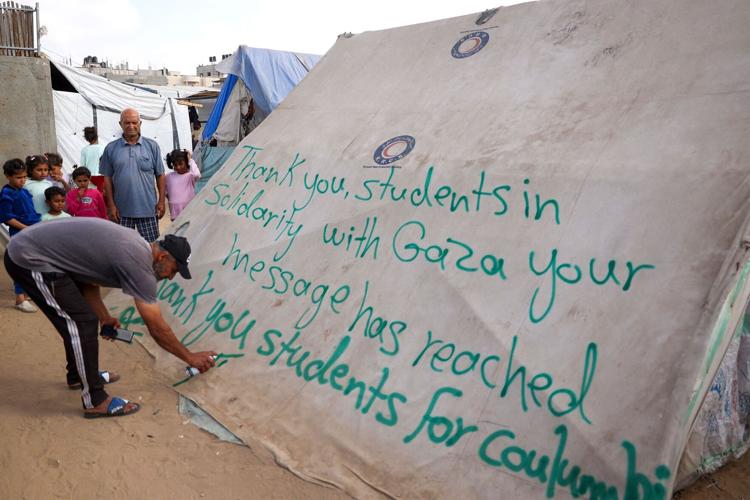 Thank you, students in
Solidarity with Gaza your
message has reached
Thank you students for
Coulumbi